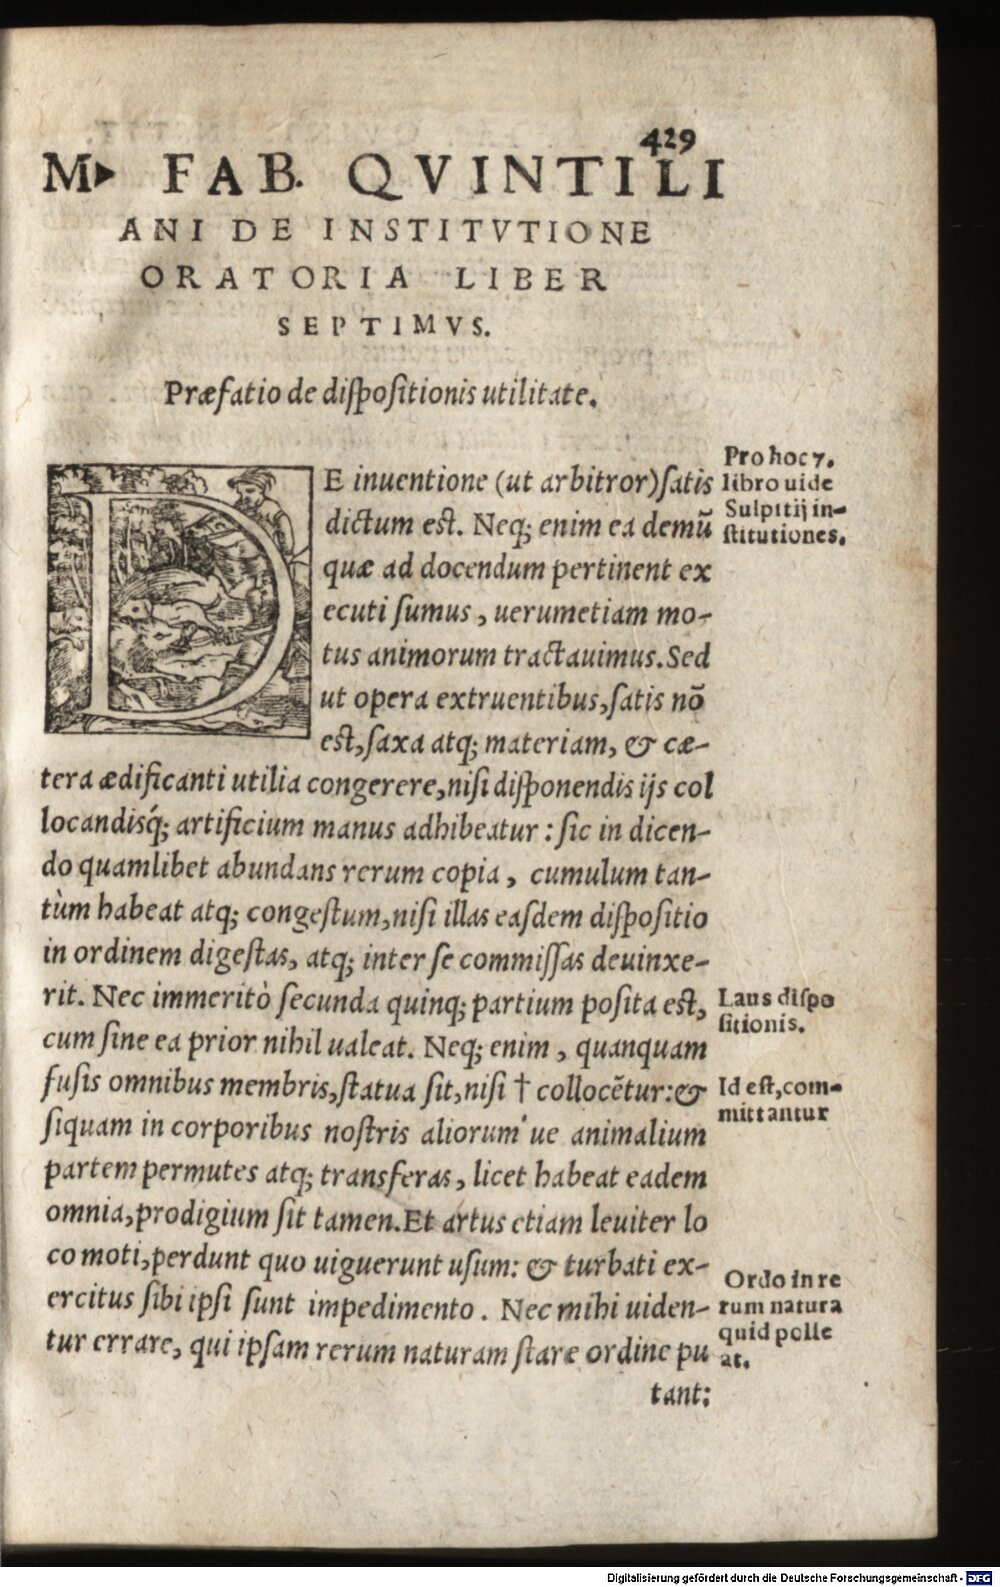 429
M▸ FAB. QVINTILI
ANI DE INSTITVTIONE
ORATORIA LIBER
SEPTIMVS.
Præfatio de diſpoſitionis utilitate.
DE inuentione (ut arbitror) ſatis
dictum eſt. Neq; enim ea demũ
quæ ad docendum pertinent ex
ecuti ſumus, uerumetiam mo-
tus animorum tractauimus. Sed
ut opera extruentibus, ſatis nõ
eſt, ſaxa atq; materiam, & cæ-
tera ædificanti utilia congerere, niſi diſponendis ijs col
locandisq́; artificium manus adhibeatur: ſic in dicen-
do quamlibet abundans rerum copia, cumulum tan-
tùm habeat atq; congeſtum, niſi illas eaſdem diſpoſitio
in ordinem digeſtas, atq; inter ſe commiſſas deuinxe-
rit. Nec immeritò ſecunda quinq; partium poſita eſt,
cum ſine ea prior nihil ualeat. Neq; enim, quanquam
fuſis omnibus membris, ſtatua ſit, niſi † collocẽtur: &
ſiquam in corporibus noſtris aliorum'ue animalium
partem permutes atq; transferas, licet habeat eadem
omnia, prodigium ſit tamen. Et artus etiam leuiter lo
co moti, perdunt quo uiguerunt uſum: & turbati ex-
ercitus ſibi ipſi ſunt impedimento. Nec mihi uiden-
tur errare, qui ipſam rerum naturam ſtare ordine pu
tant:
Pro hoc 7.
libro uide
Sulpitij in-
ſtitutiones.
Laus diſpo
ſitionis.
Id eſt, com-
mittantur
Ordo in re
rum natura
quid polle
at.
Digitalisierung gefördert durch die Deutsche Forschungsgemeinschaft - DFG